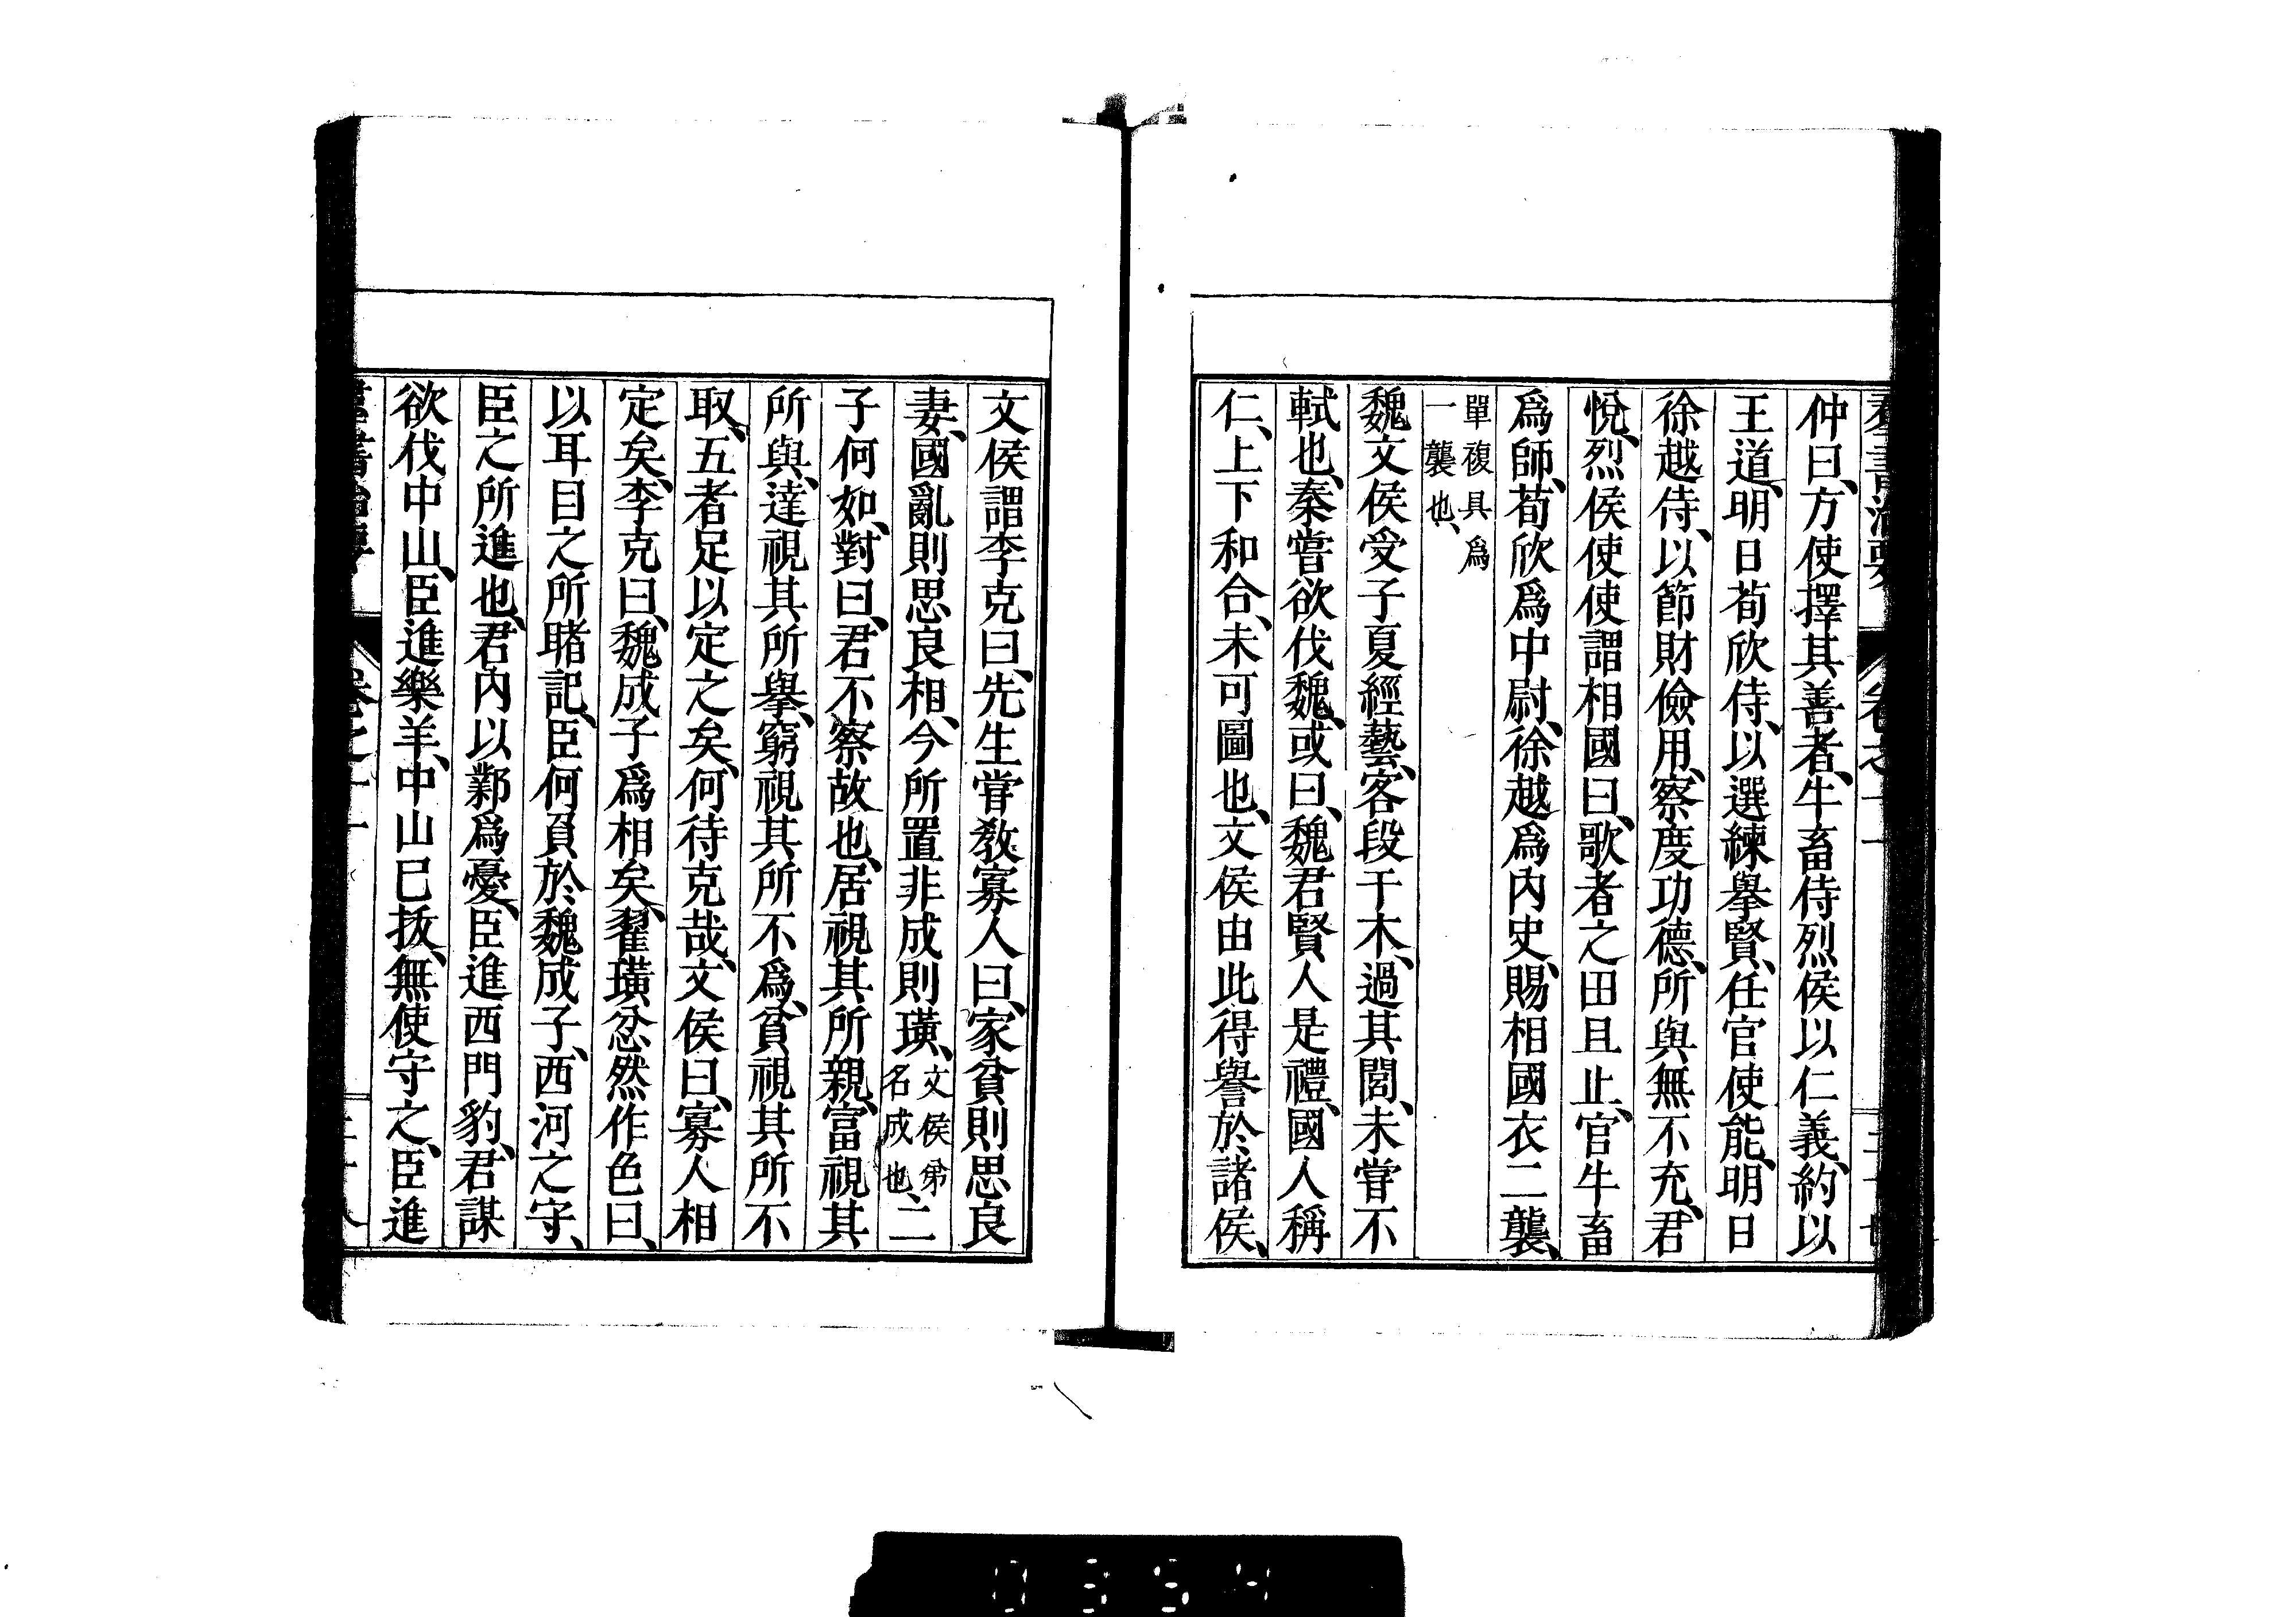 仲曰、方使擇其善者、牛畜侍烈侯以仁義、約以
王道、明日荀欣侍、以選練擧賢、任官使能、明日
徐越侍、以節財儉用、察度功德、所與無不充、君
悅、烈侯使使謂相國曰、歌者之田且止、官牛畜
爲師、荀欣爲中尉、徐越爲內史、賜相國衣二襲、
單複具爲
一襲也、
魏文侯受子夏經藝、客段干木、過其閭、未嘗不
軾也、秦嘗欲伐魏、或曰、魏君賢人是禮、國人稱
仁、上下和合、未可圖也、文侯由此得譽於諸侯、
文侯謂李克曰、先生嘗敎寡人曰、家貧則思良
妻、國亂則思良相、今所置非成則璜、文侯弟名成也、二
子何如、對曰、君不察故也、居視其所親、富視其
所與、達視其所擧、窮視其所不爲、貧視其所不
取、五者足以定之矣、何待克哉、文侯曰、寡人相
定矣、李克曰、魏成子爲相矣、翟璜忿然作色曰、
以耳目之所睹記、臣何負於魏成子、西河之守、
臣之所進也、君內以鄴爲憂、臣進西門豹、君謀
欲伐中山、臣進樂羊、中山已拔、無使守之、臣進